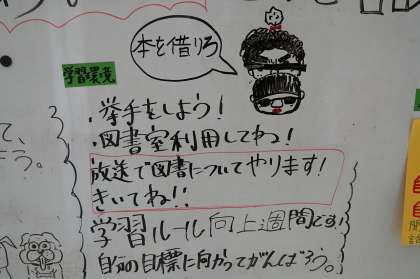 本を借りろ
学習環境
・挙手をしよう!
・図書室利用してね!
放送で図書についてやります!
きいてね!!
学習ルール向上週間です!
自分の目標に向かってがんばろう。